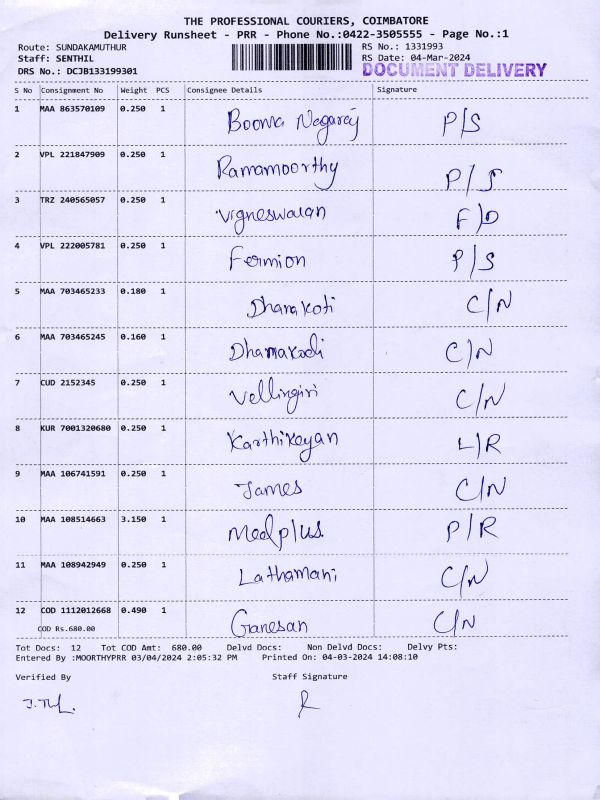 THE PROFESSIONAL COURIERS, COIMBATORE
Delivery Runsheet - PRR - Phone No.:0422-3505555 - Page No.:1
Route: SUNDAKAMUTHUR RS No.: 1331993
Staff: SENTHIL RS Date: 04-Mar-2024
DRS No.: DCJB133199301 DOCUMENT DELIVERY
S No Consignment No Weight PCS Consignee Details Signature
1 MAA 863570109 0.250 1 Booma Nagaraj P/S
2 VPL 221847909 0.250 1 Ramamoorthy P/S
3 TRZ 240565057 0.250 1 Vigneswaran F/D
4 VPL 222005781 0.250 1 Fermion P/S
5 MAA 703465233 0.180 1 Dharakoti C/N
6 MAA 703465245 0.160 1 Dhamakodi C/N
7 CUD 2152345 0.250 1 Vellingiri C/N
8 KUR 7001320680 0.250 1 Karthikeyan L/R
9 MAA 106741591 0.250 1 James C/N
10 MAA 108514663 3.150 1 Medplus P/R
11 MAA 108942949 0.250 1 Lathamani C/N
12 COD 1112012668 0.490 1 Ganesan C/N
COD Rs.680.00
Tot Docs: 12 Tot COD Amt: 680.00 Delvd Docs: Non Delvd Docs: Delvy Pts:
Entered By :MOORTHYPRR 03/04/2024 2:05:32 PM Printed On: 04-03-2024 14:08:10
Verified By Staff Signature